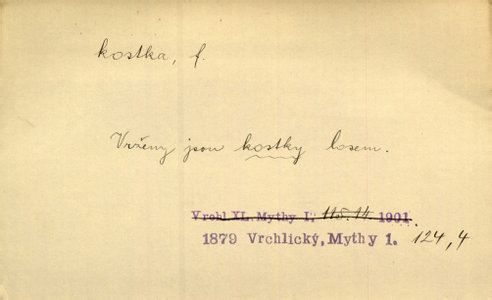 kostka, f.
Vrženy jsou kostky losem.
Vrchl. XL. Mythy I, 115.14. 1901.
1879 Vrchlický, Mythy 1. 124,4